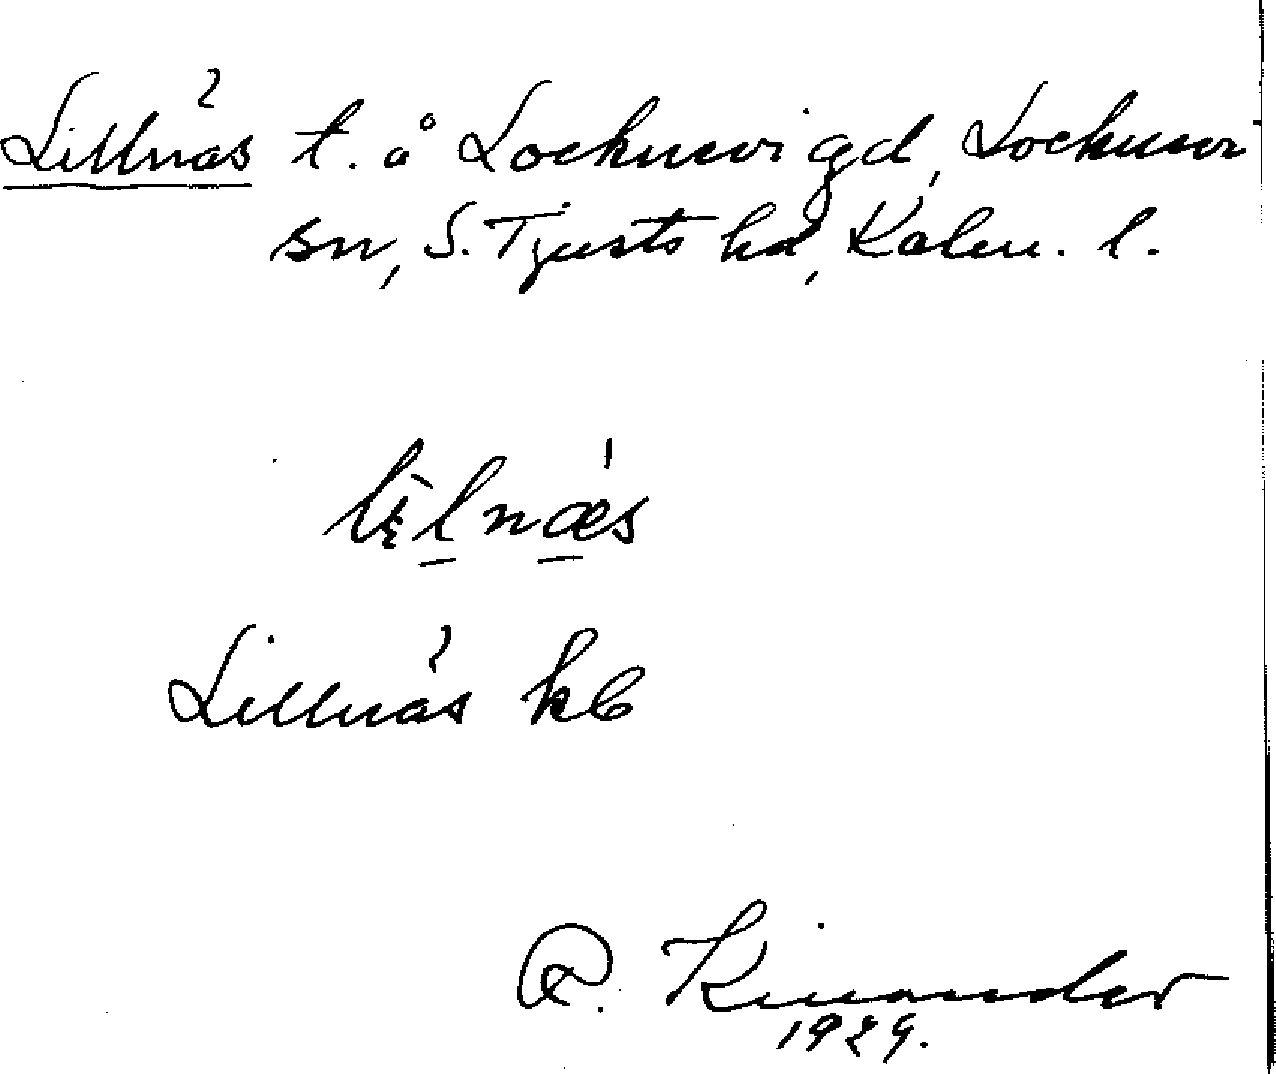 Lillnäs t. å Locknevi gd, Locknevi
sn, S. Tjusts hd, Kalm. l.
Lillnäs kb
R. Kinander
1929.